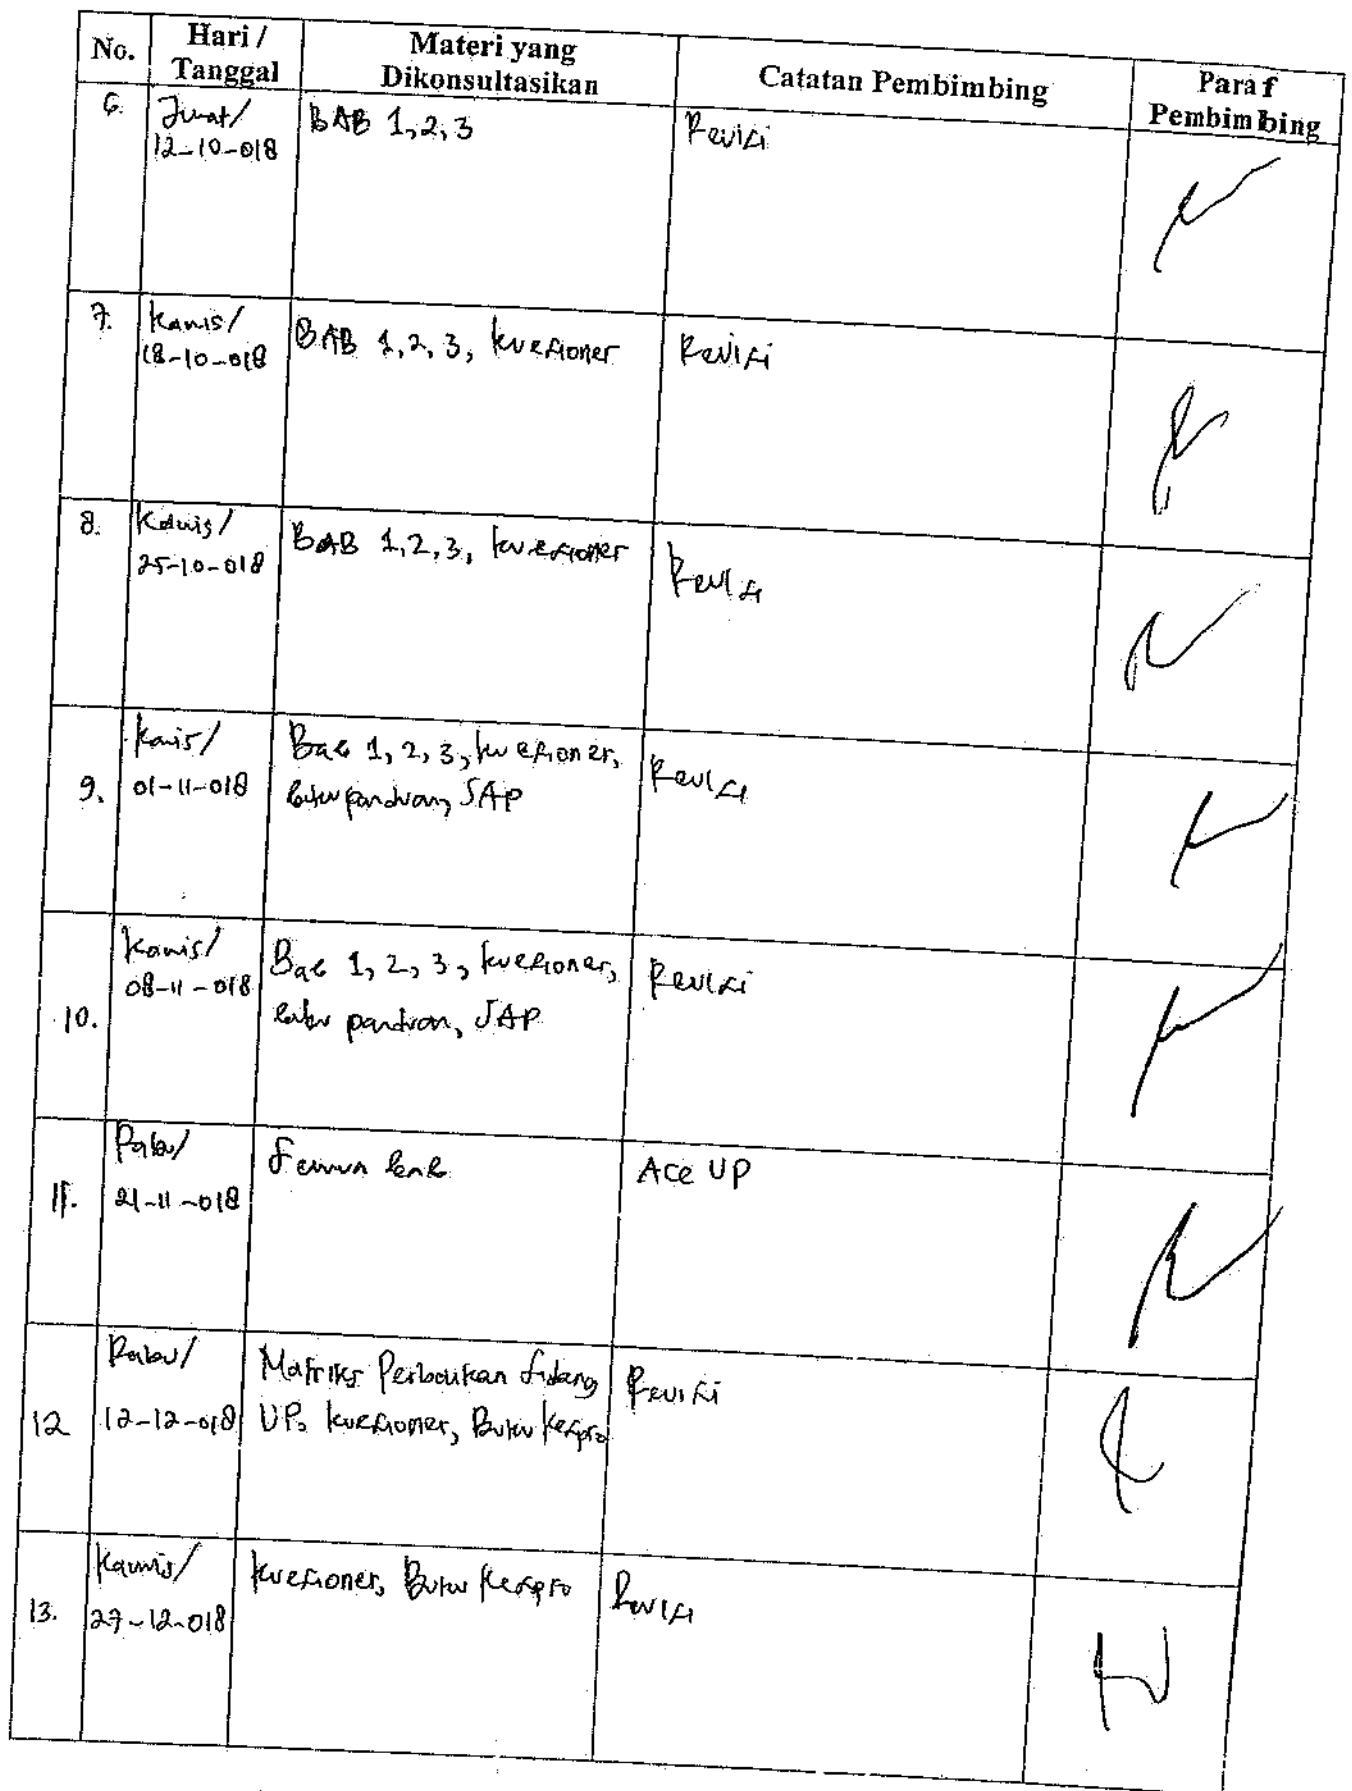 No.
Hari /
Tanggal
Materi yang
Dikonsultasikan
Catatan Pembimbing
Paraf
Pembimbing
6.
Jumat/
12-10-018
BAB 1,2,3
Revisi
7.
Kamis/
18-10-018
BAB 1,2,3, kuesioner
Revisi
8.
Kamis/
25-10-018
BAB 1,2,3, kuesioner
Revisi
9.
Kamis/
01-11-018
Bab 1, 2, 3, kuesioner,
buku panduan, SAP
Revisi
10.
Kamis/
08-11-018
Bab 1, 2, 3, kuesioner,
buku panduan, SAP
Revisi
11.
Rabu/
21-11-018
Semua bab
Acc UP
12
Rabu/
12-12-018
Matriks Perbaikan Sidang
UP, kuesioner, Buku Kespro
Revisi
13.
Kamis/
27-12-018
kuesioner, Buku Kespro
Revisi